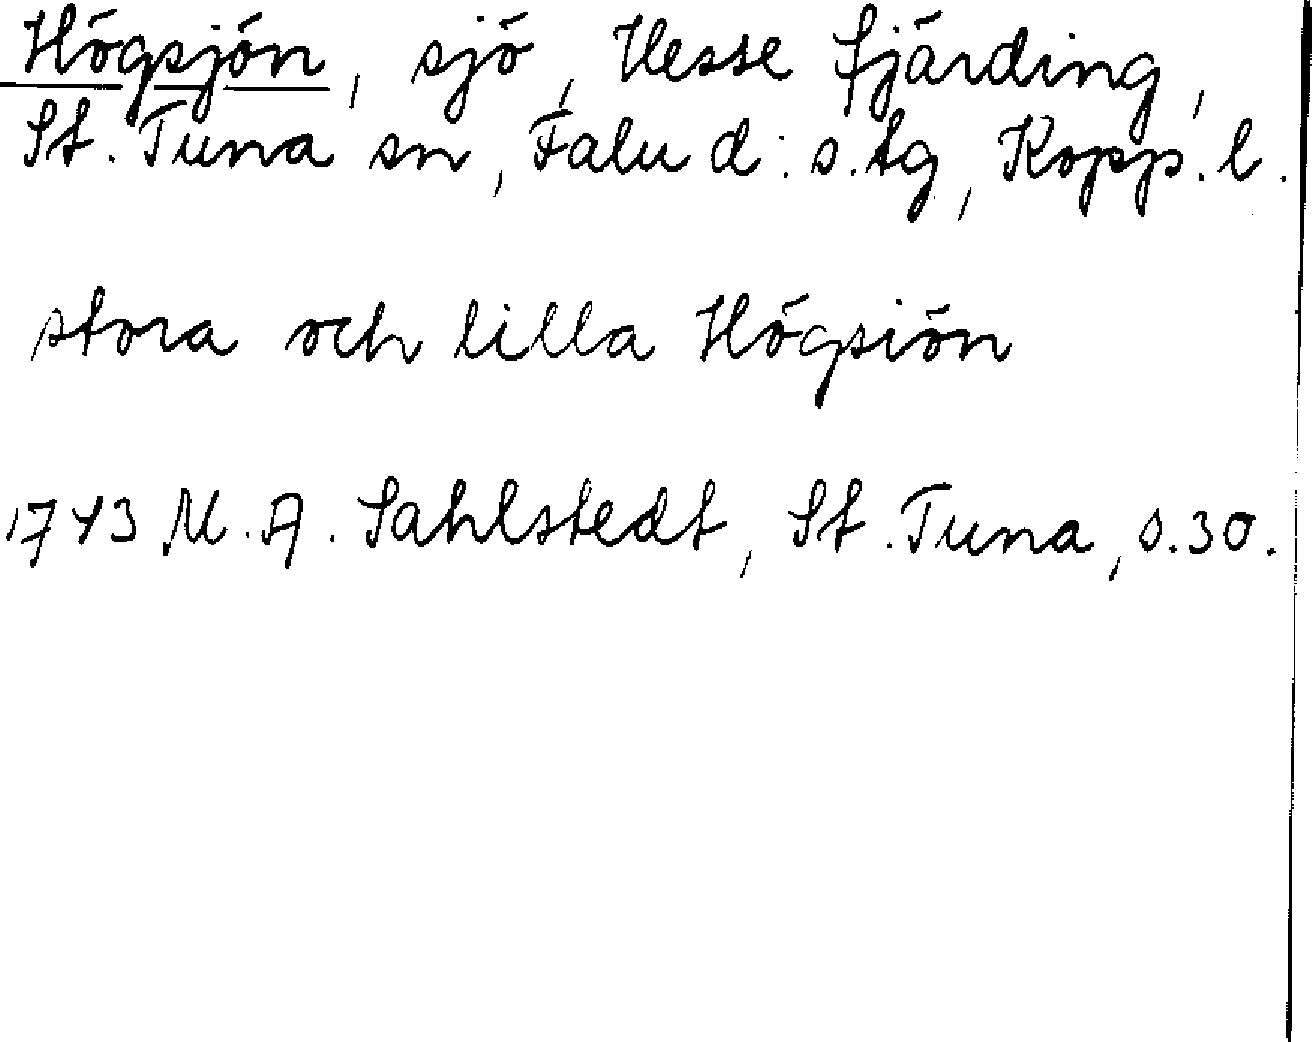 Högsjön, sjö, Hesse fjärding,
St. Tuna sn, Falu d:s.tg, Kopp. l.
stora och lilla Högsiön
1743 M. A. Sahlstedt, St. Tuna, s.30.